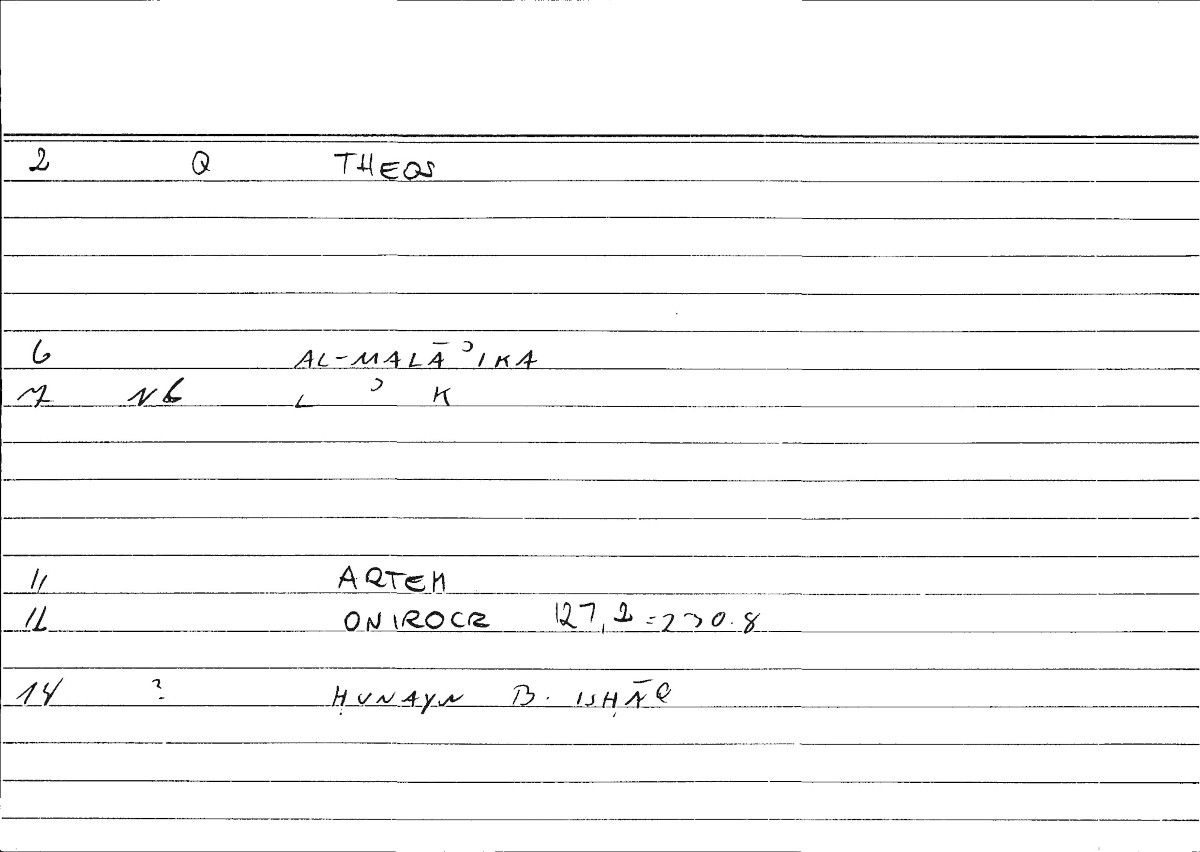 2 Q THEOS
6 AL-MALĀʾIKA
7 N6 L ʾ K
11 ARTEM
12 ONIROCR 127,2=230.8
14 ? ḤUNAYN B. ISḤĀQ